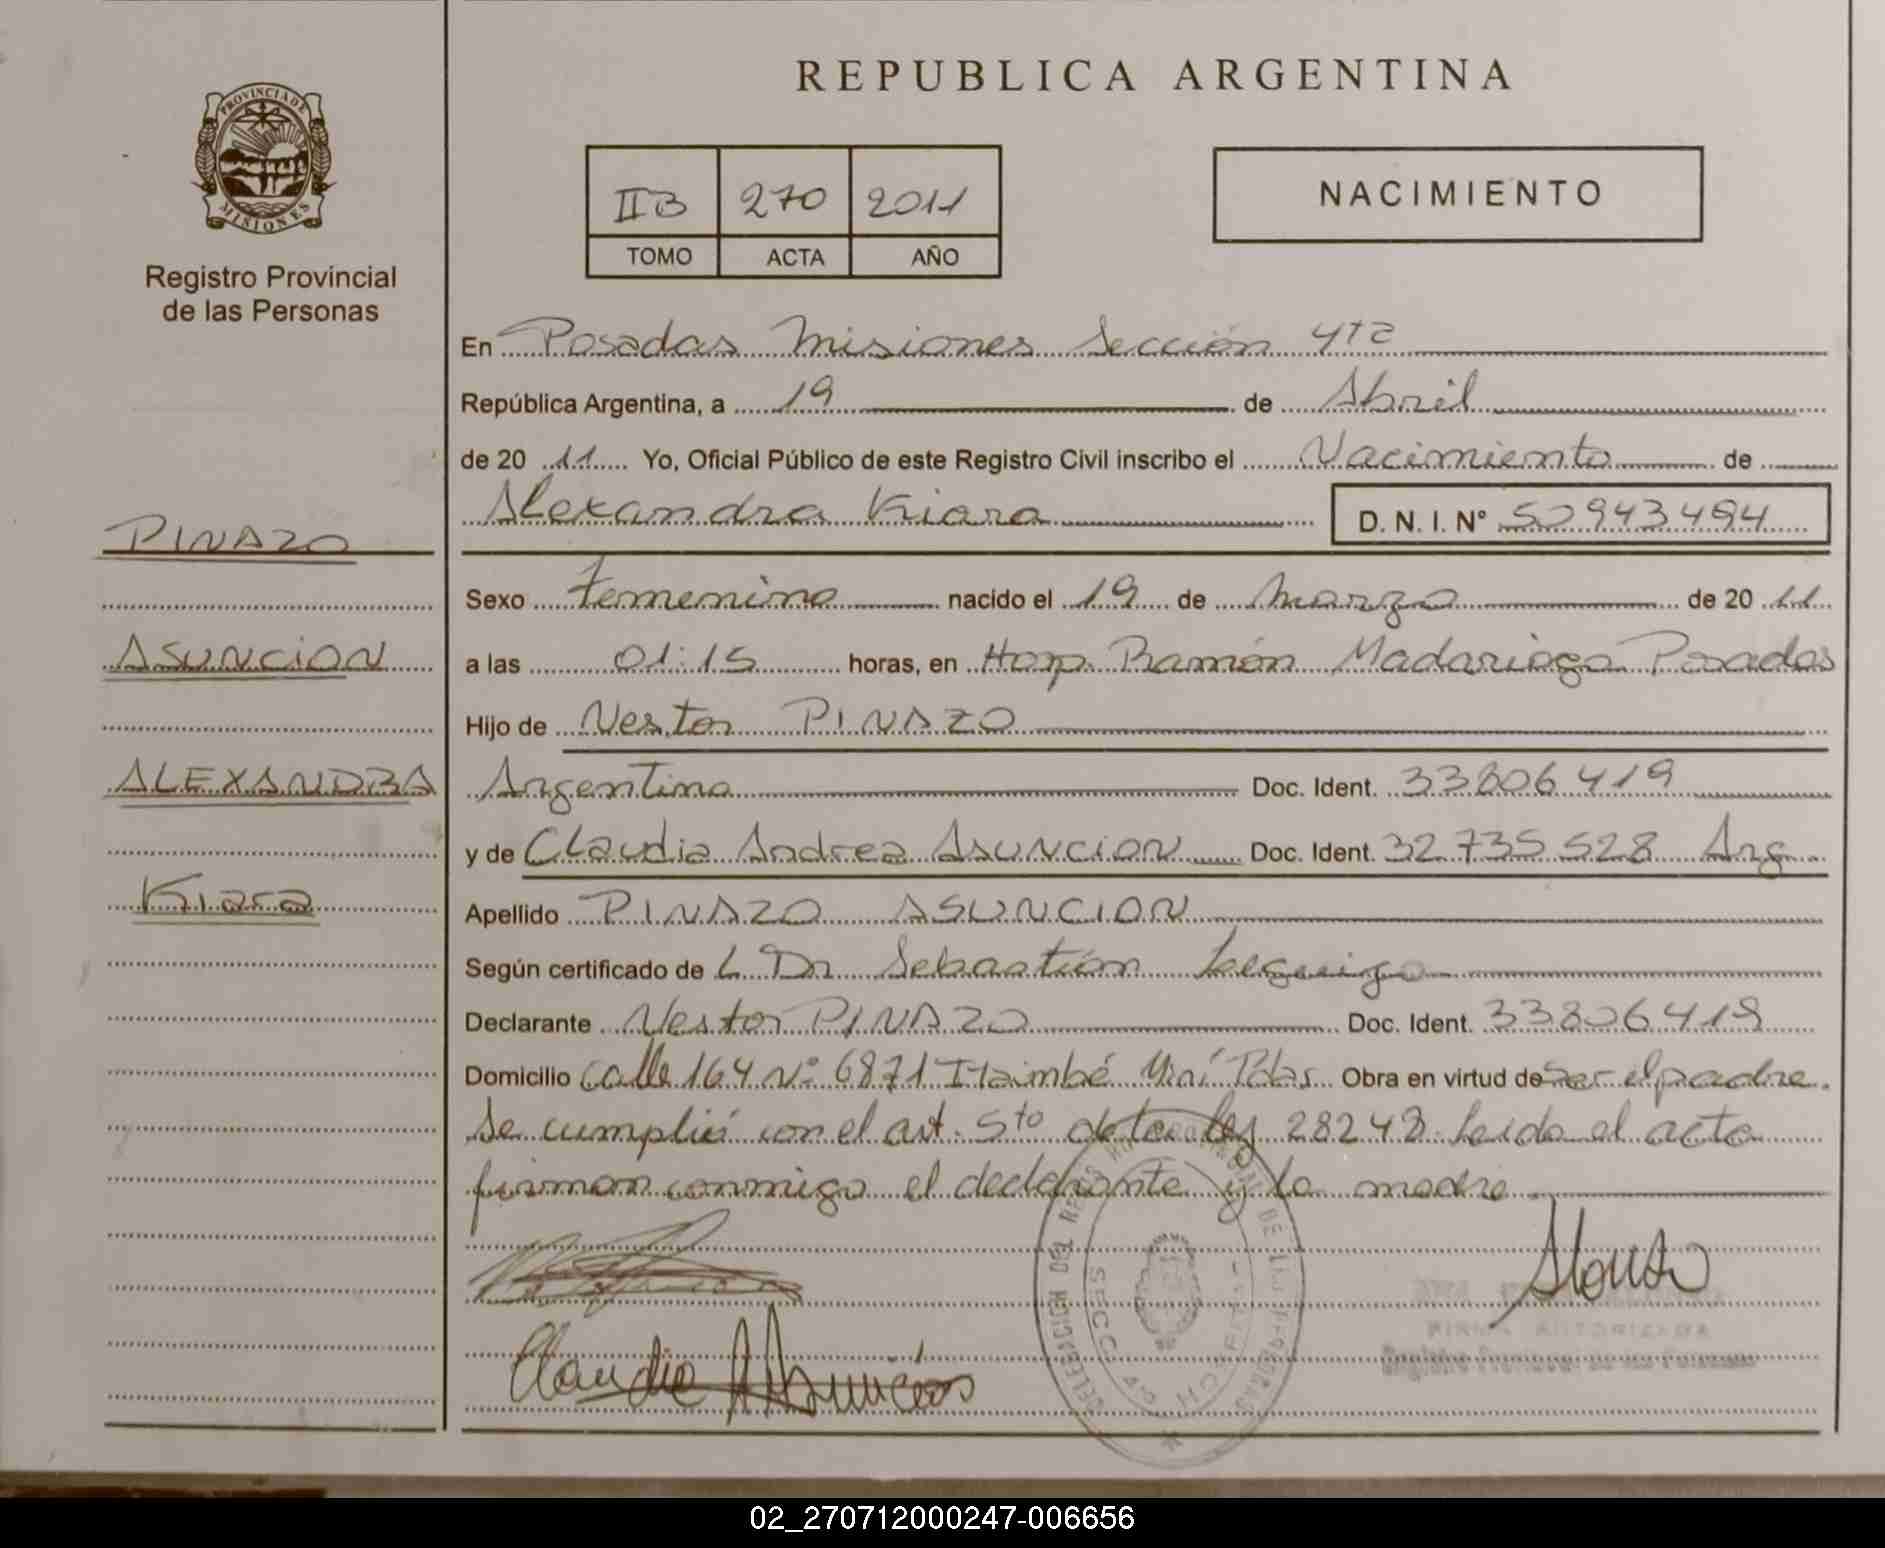 PROVINCIA DE
MISIONES
Registro Provincial
de las Personas
PINAZO
ASUNCION
ALEXANDRA
Kiara
REPUBLICA ARGENTINA
IIB 270 2011
TOMO ACTA AÑO
NACIMIENTO
En Posadas Misiones Sección 4ta
República Argentina, a 19 de Abril
de 20 11 Yo, Oficial Público de este Registro Civil inscribo el Nacimiento de
Alexandra Kiara D. N. I. N° 50943494
Sexo Femenino nacido el 19 de Marzo de 20 11
a las 01:15 horas, en Hosp. Ramón Madariaga Posadas
Hijo de Nestor PINAZO
Argentino Doc. Ident. 33806419
y de Claudia Andrea ASUNCION Doc. Ident. 32735528 Arg.
Apellido PINAZO ASUNCION
Según certificado de L Dr Sebastián
Declarante Nestor PINAZO Doc. Ident. 33806419
Domicilio Calle 164 N° 6871 Itaimbé Miní Pdas. Obra en virtud de ser el padre.
Se cumplió con el art. 5to de la Ley 28248. Leida el acta
firman conmigo el declarante y la madre
Claudia A Asunción
FIRMA AUTORIZADA
Registro Provincial de las Personas
02_270712000247-006656